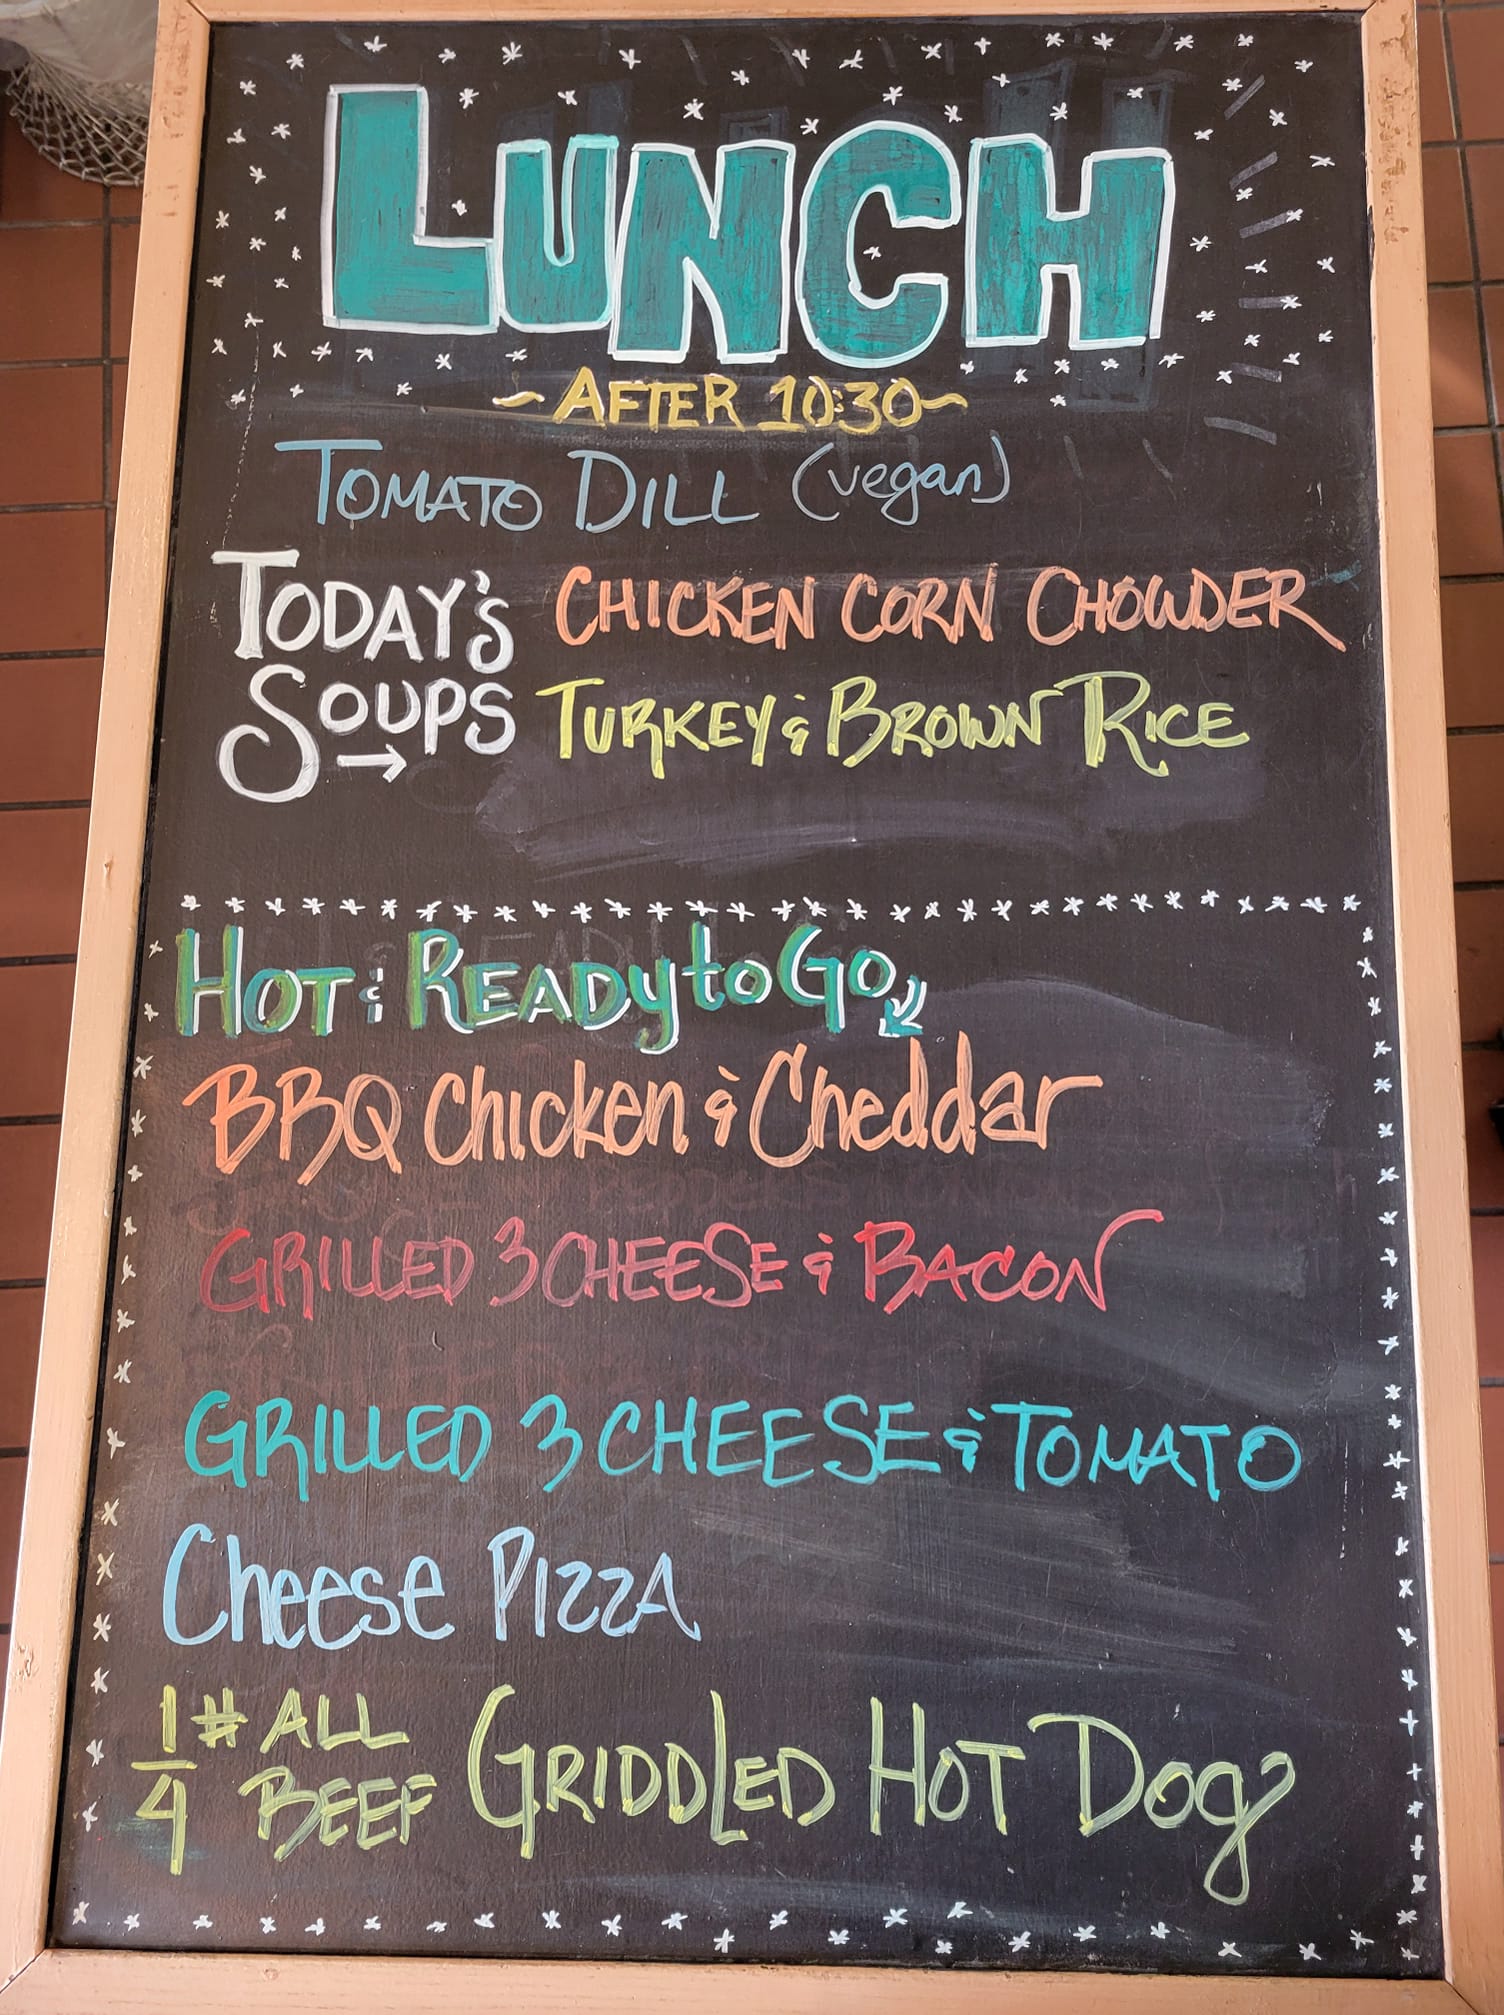 LUNCH
~AFTER 10:30~
TOMATO DILL (vegan)
TODAY'S
SOUPS →
CHICKEN CORN CHOWDER
TURKEY & BROWN RICE
HOT & READY to GO
BBQ Chicken & Cheddar
GRILLED 3 CHEESE & BACON
GRILLED 3 CHEESE & TOMATO
Cheese PIZZA
1/4 # ALL BEEF GRIDDLED HOT DOg